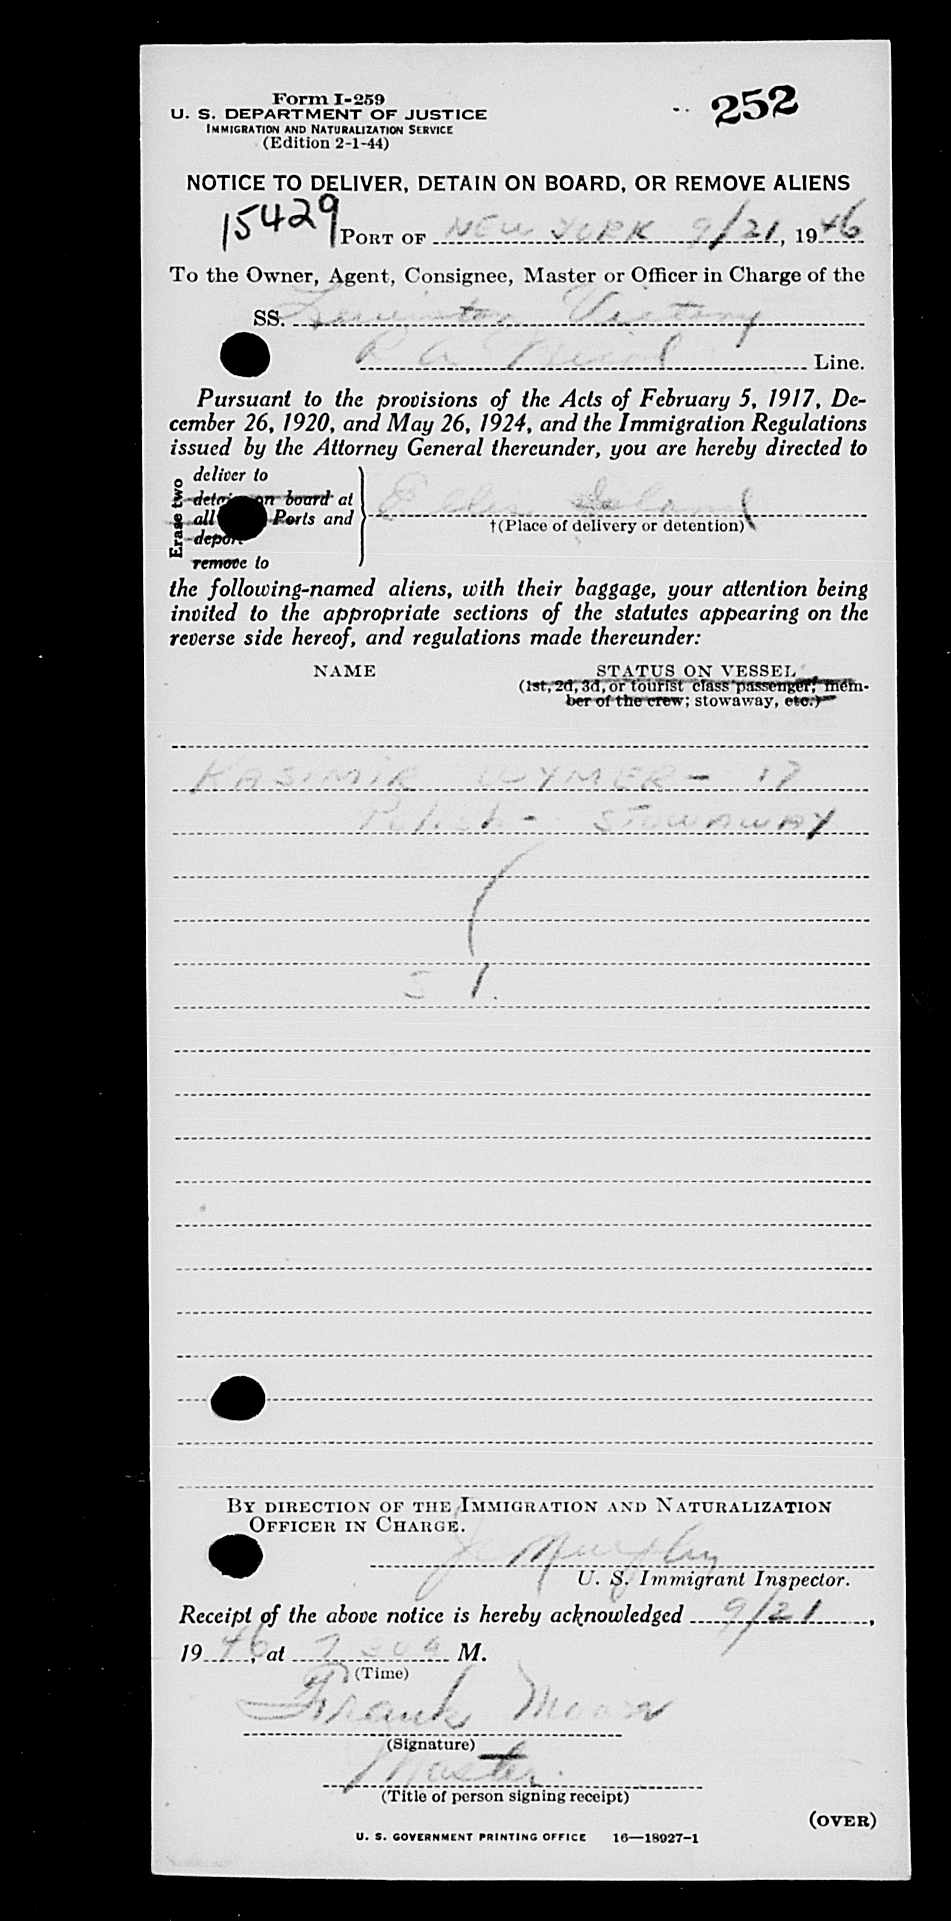 Form I-259
252
U. S. DEPARTMENT OF JUSTICE
IMMIGRATION AND NATURALIZATION SERVICE
(Edition 2-1-44)
NOTICE TO DELIVER, DETAIN ON BOARD, OR REMOVE ALIENS
15429
PORT OF NEW YORK 9/21, 1946
To the Owner, Agent, Consignee, Master or Officer in Charge of the
SS. Victory
Line.
Pursuant to the provisions of the Acts of February 5, 1917, De-
cember 26, 1920, and May 26, 1924, and the Immigration Regulations
issued by the Attorney General thereunder, you are hereby directed to
Erase two
deliver to
detain on board at
all Ports and
deport
remove to
Ellis Island
†(Place of delivery or detention)
the following-named aliens, with their baggage, your attention being
invited to the appropriate sections of the statutes appearing on the
reverse side hereof, and regulations made thereunder:
NAME STATUS ON VESSEL
(1st, 2d, 3d, or tourist class passenger; mem-
ber of the crew; stowaway, etc.)
KASIMIR WYMER - 17
Polish - STOWAWAY
51.
BY DIRECTION OF THE IMMIGRATION AND NATURALIZATION
OFFICER IN CHARGE.
Murphy
U. S. Immigrant Inspector.
Receipt of the above notice is hereby acknowledged 9/21,
1946, at M.
(Time)
Frank Moon
(Signature)
Master.
(Title of person signing receipt)
(OVER)
U. S. GOVERNMENT PRINTING OFFICE 16—18927-1